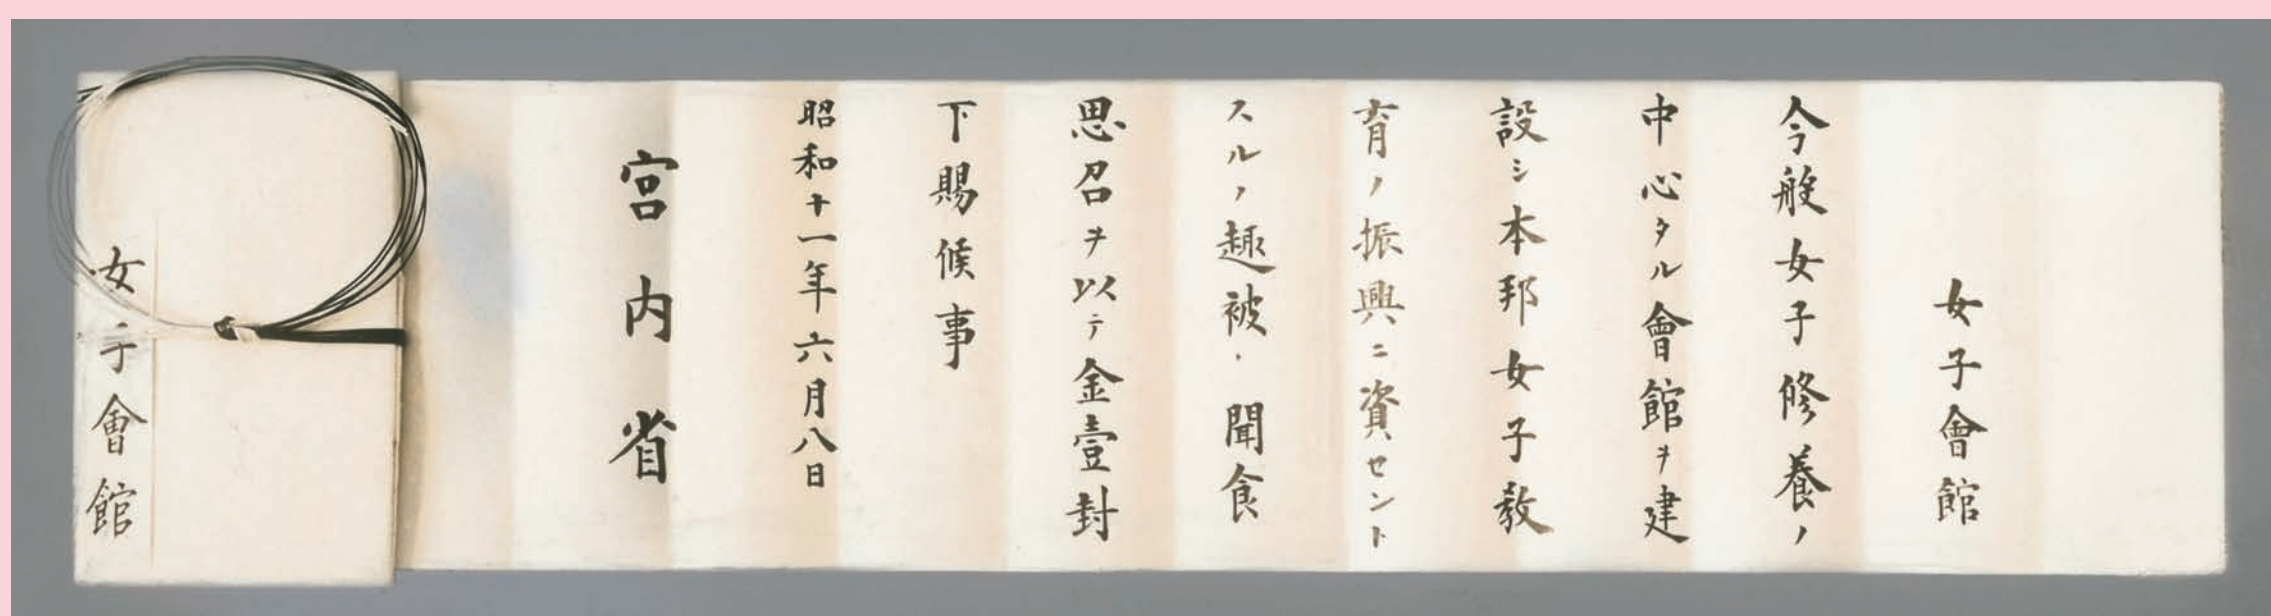 女子會館
今般女子修養ノ
中心タル會館ヲ建
設シ本邦女子教
育ノ振興ニ資セント
スルノ趣被 聞食
思召ヲ以テ金壹封
下賜候事
昭和十一年六月八日
宮内省
女子會館